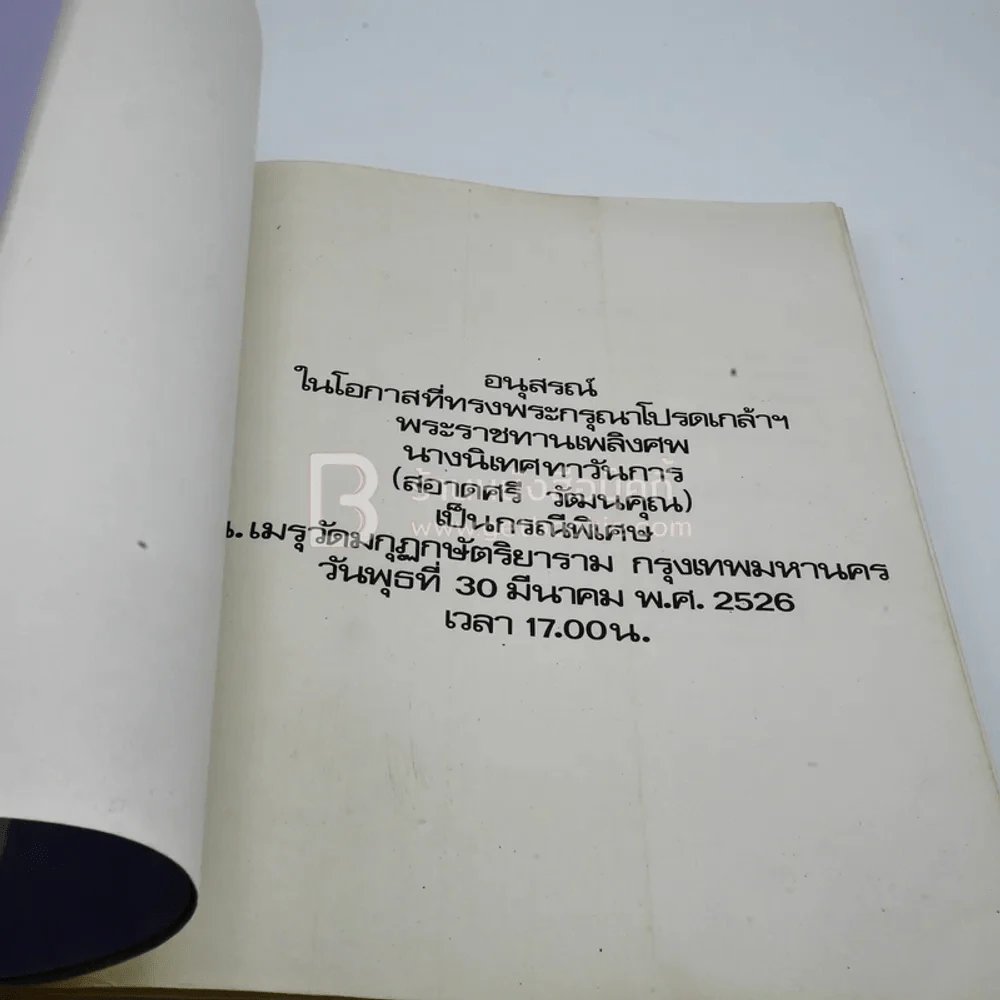 อนุสรณ์
ในโอกาสที่ทรงพระกรุณาโปรดเกล้าฯ
พระราชทานเพลิงศพ
นางนิเทศทาวันการ
(สอาดศรี วัฒนคุณ)
เป็นกรณีพิเศษ
ณ. เมรุวัดมกุฏกษัตริยาราม กรุงเทพมหานคร
วันพุธที่ 30 มีนาคม พ.ศ. 2526
เวลา 17.00น.